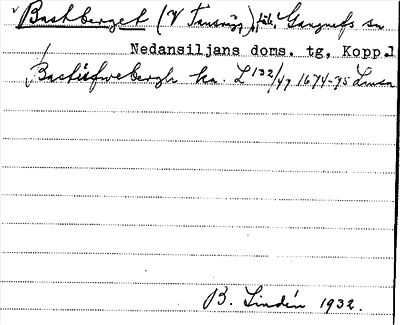 Bastberget (V Tansvägg), fäb. Gagnefs sn
Nedansiljans doms. tg, Kopp.l
Bastisfwebergh ka. L 132/47 1674-75 Lmsn
B. Lindén 1932.